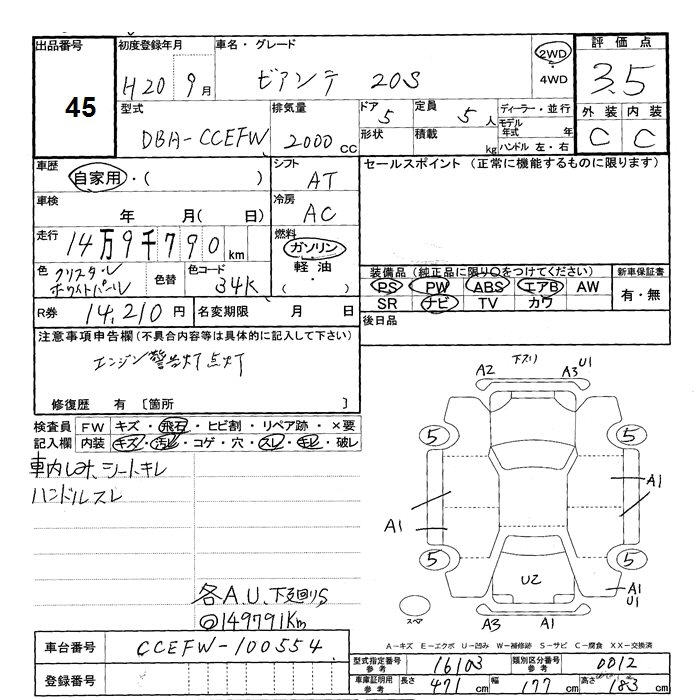 出品番号 初度登録年月 車名・グレード 2WD ・ 4WD 評価点
45 H20 9月 ビアンテ 20S 3.5
型式 排気量 ドア 定員 ディーラー・並行 外装 内装
DBA-CCEFW 2000cc 5 5人 モデル年式 年 C C
形状 積載 kg ハンドル 左・右
車歴 シフト セールスポイント(正常に機能するものに限ります)
自家用・( ) AT
車検 冷房
年 月( 日) AC
走行 燃料
14万9千790km ガソリン
色 クリスタルホワイトパール 色替 色コード 34K 軽油 ・( )
装備品(純正品に限り〇をつけてください) 新車保証書
PS PW ABS エアB AW 有・無
SR ナビ TV カワ
R券 14,210円 名変期限 月 日 後日品
注意事項申告欄(不具合内容等は具体的に記入して下さい)
エンジン警告灯点灯
修復歴 有〔箇所 〕
検査員 FW キズ・飛石・ヒビ割・リペア跡・×要
記入欄 内装 キズ・汚レ・コゲ・穴・スレ・キレ・破レ
車内しみ、シートキレ
ハンドルスレ
各A.U、下廻りS
@149791Km
A2 下スリ A3 U1
5 5
A1 A1
5 5
U2 A1 U1
スペア A3 A1
A-キズ E-エクボ U-凹み W-補修跡 S-サビ C-腐食 XX-交換済
車台番号 CCEFW-100554
登録番号
型式指定番号 参考 16103 類別区分番号 参考 0012
車庫証明用 参考 長さ 471cm 幅 177cm 高さ 183cm